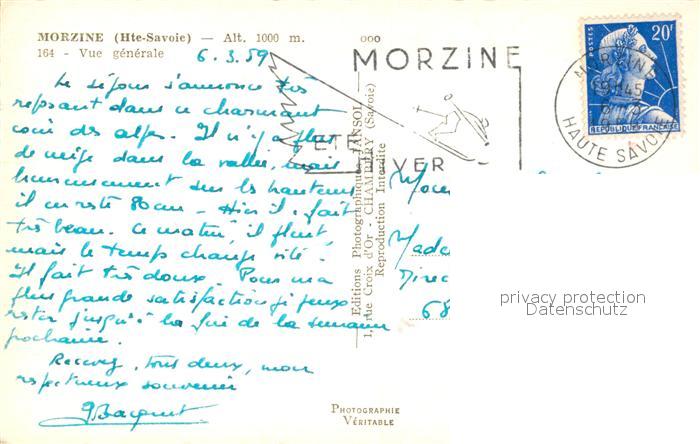 MORZINE (Hte-Savoie) — Alt. 1000 m.
164 - Vue générale
6.3.59
Le séjour s'annonce très
reposant dans ce charmant
coin des alpes. Il n'y a plus
de neige dans la vallée, mais
heureusement sur les hauteurs
il en reste 80cm - Hier il fait
très beau. Ce matin, il pleut,
mais le temps change vite.
Il fait très doux. Pour ma
plus grande satisfaction je peux
rester jusqu'à la fin de la semaine
prochaine.
Recevez, tous deux, mon
respectueux souvenir
Editions Photographiques JANSOL
1, rue Croix d'Or - CHAMBÉRY (Savoie)
Reproduction Interdite
PHOTOGRAPHIE
VÉRITABLE
MORZINE
ETE
VER
POSTES
20F
REPUBLIQUE FRANÇAISE
MORZINE
HAUTE SAVOIE
Direc
68
privacy protection
Datenschutz